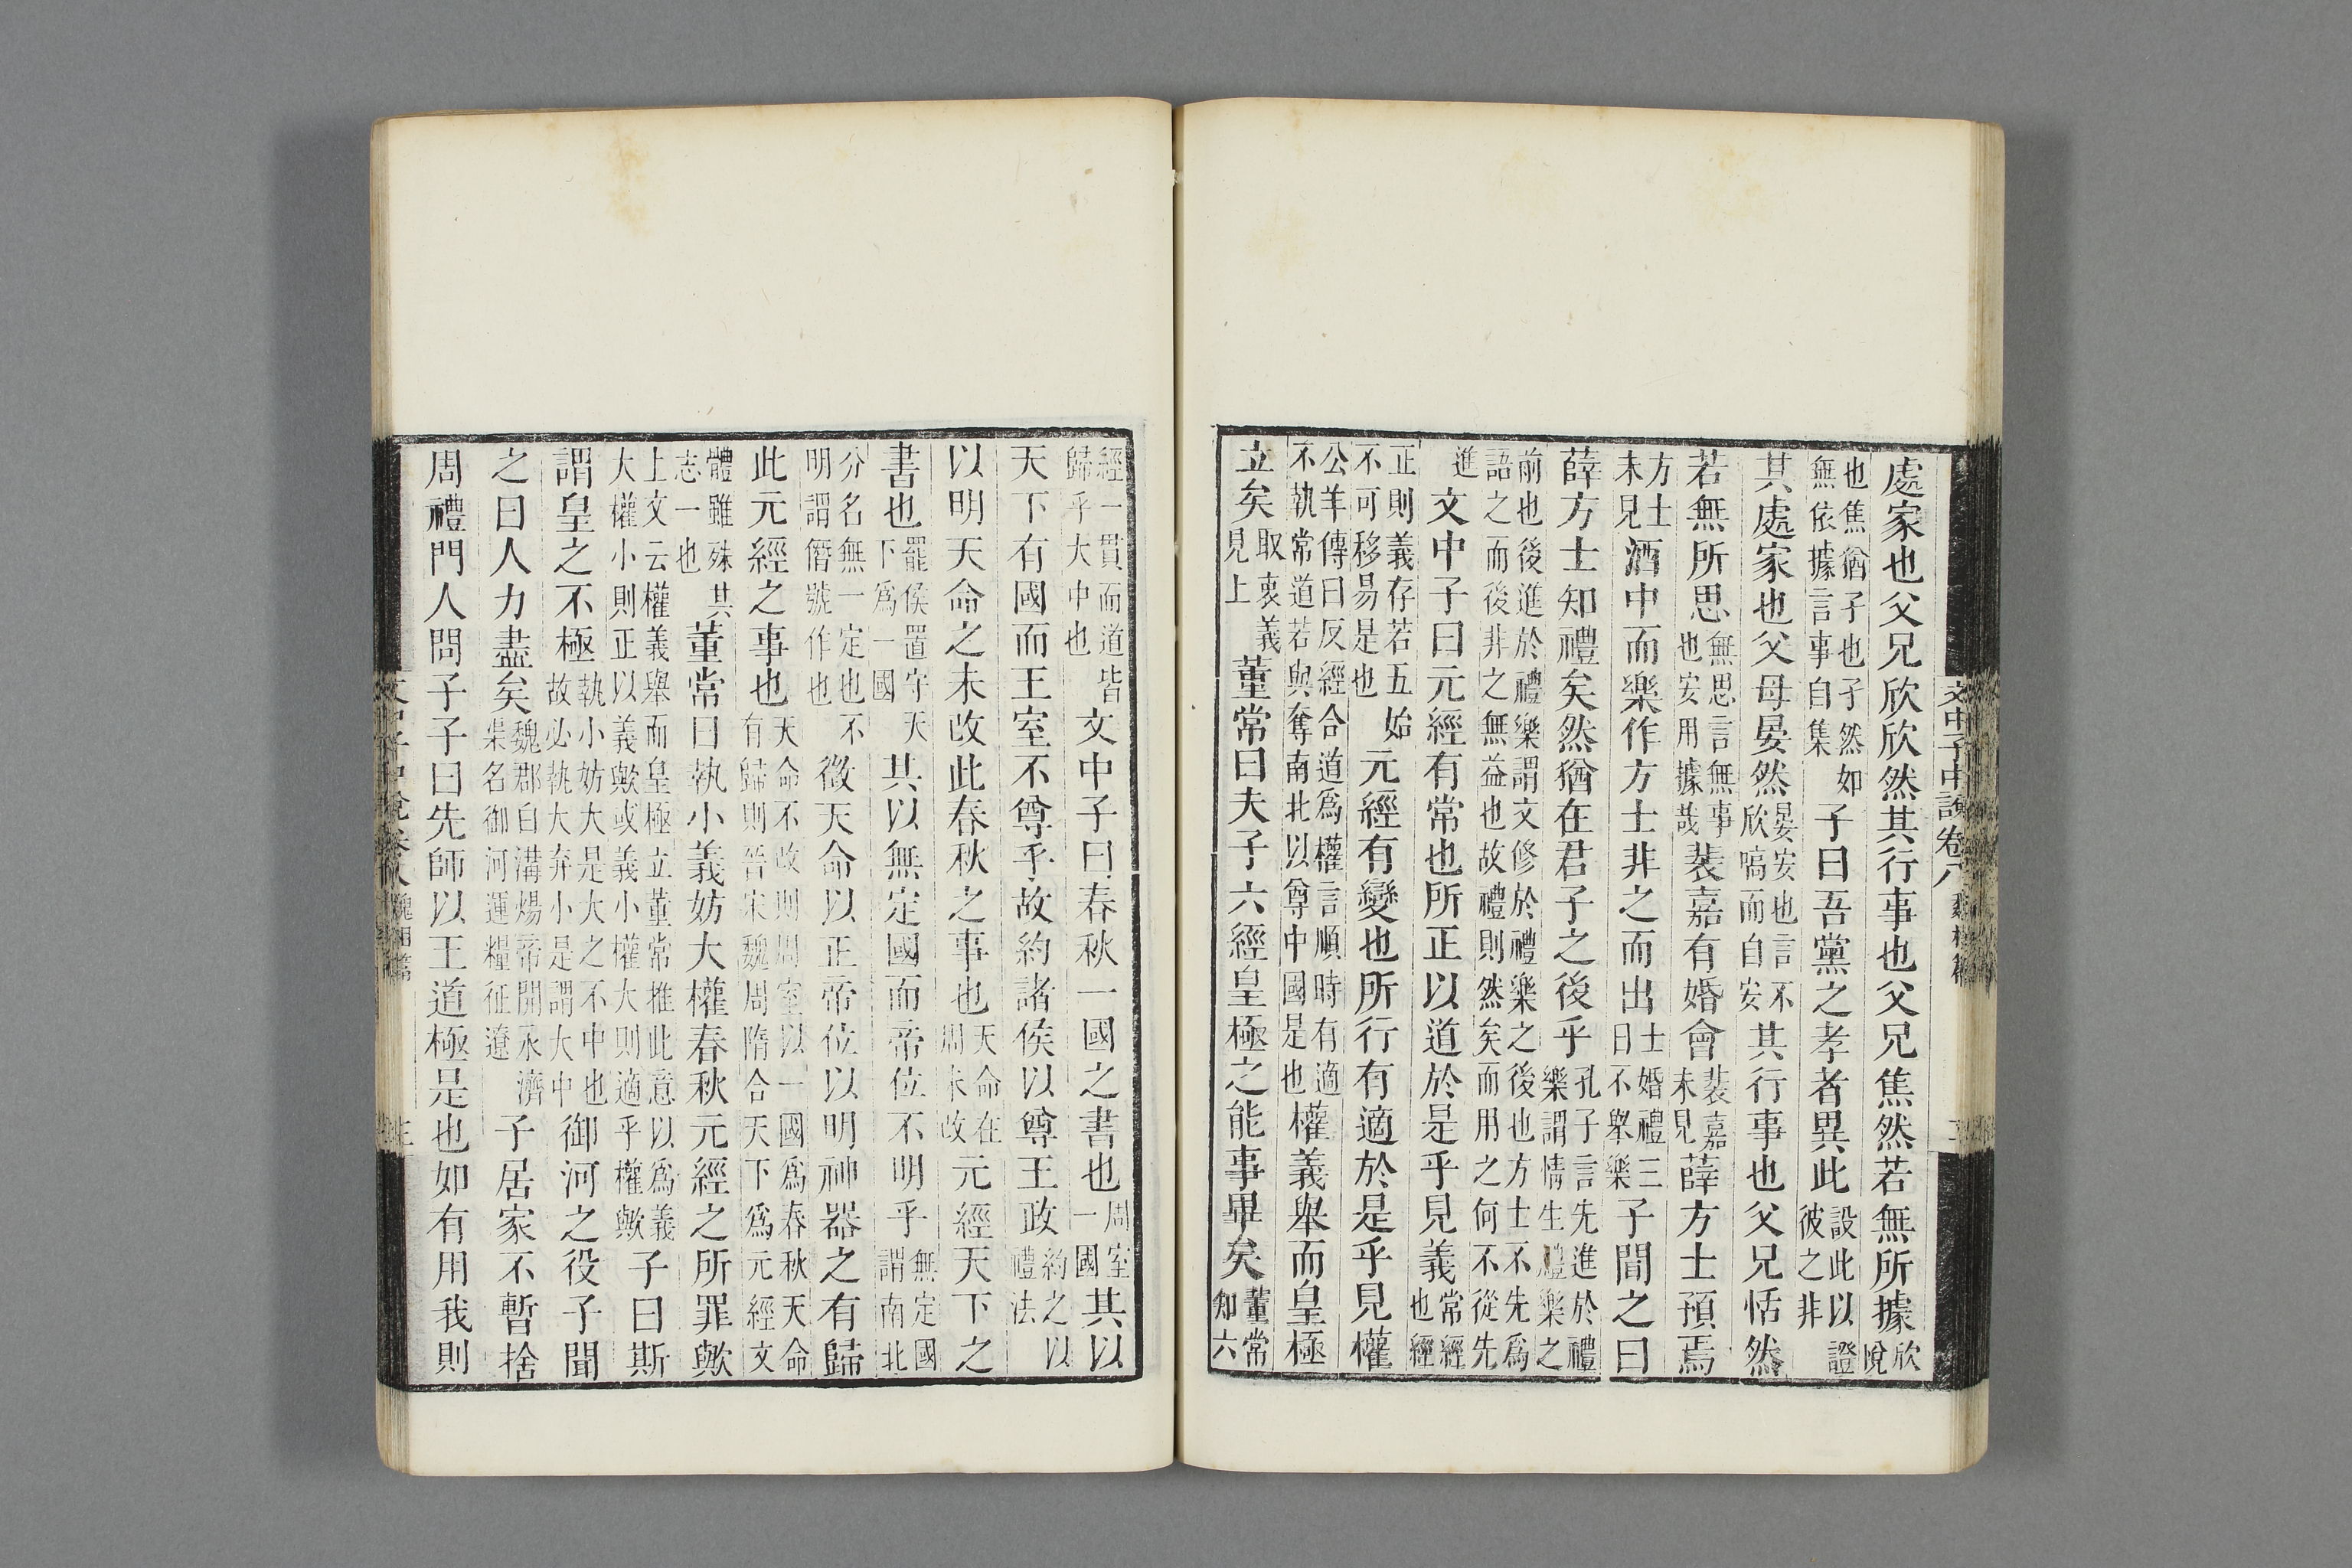 文中子中說卷八 魏相篇
處家也父兄欣欣然其行事也父兄焦然若無所據欣悅
也焦猶孑也孑然如無依據言事自集子曰吾黨之孝者異此設此以證彼之非
其處家也父母晏然晏安也言不欣嗃而自安其行事也父兄恬然
若無所思無思言無事也安用據哉裴嘉有婚會裴嘉未見薛方士預焉
方士未見酒中而樂作方士非之而出士婚禮三日不舉樂子聞之曰
薛方士知禮矣然猶在君子之後乎孔子言先進於禮樂謂情生禮樂之
前也後進於禮樂謂文修於禮樂之後也方士不先爲語之而後非之無益也故禮則然矣而用之何不從先
進文中子曰元經有常也所正以道於是乎見義常經也經
正則義存若五始不可移易是也元經有變也所行有適於是乎見權
公羊傳曰反經合道爲權言順時有適不執常道若與奪南北以尊中國是也權義舉而皇極
立矣取衷義見上董常曰夫子六經皇極之能事畢矣董常知六
經一貫而道皆歸乎大中也文中子曰春秋一國之書也周室一國其以
天下有國而王室不尊乎故約諸侯以尊王政約之以禮法
以明天命之未改此春秋之事也天命在周未改元經天下之
書也罷侯置守天下爲一國其以無定國而帝位不明乎無定國謂南北
分名無一定也不明謂僭號作也徵天命以正帝位以明神器之有歸
此元經之事也天命不改則周室以一國爲春秋天命有歸則晉宋魏周隋合天下爲元經文
體雖殊其志一也董常曰執小義妨大權春秋元經之所罪歟
上文云權義舉而皇極立董常推此意以爲義大權小則正以義歟或義小權大則適乎權歟子曰斯
謂皇之不極執小妨大是大之不中也故必執大弃小是謂大中御河之役子聞
之曰人力盡矣魏郡白溝煬帝開永濟渠名御河運糧征遼子居家不暫捨
周禮門人問子子曰先師以王道極是也如有用我則